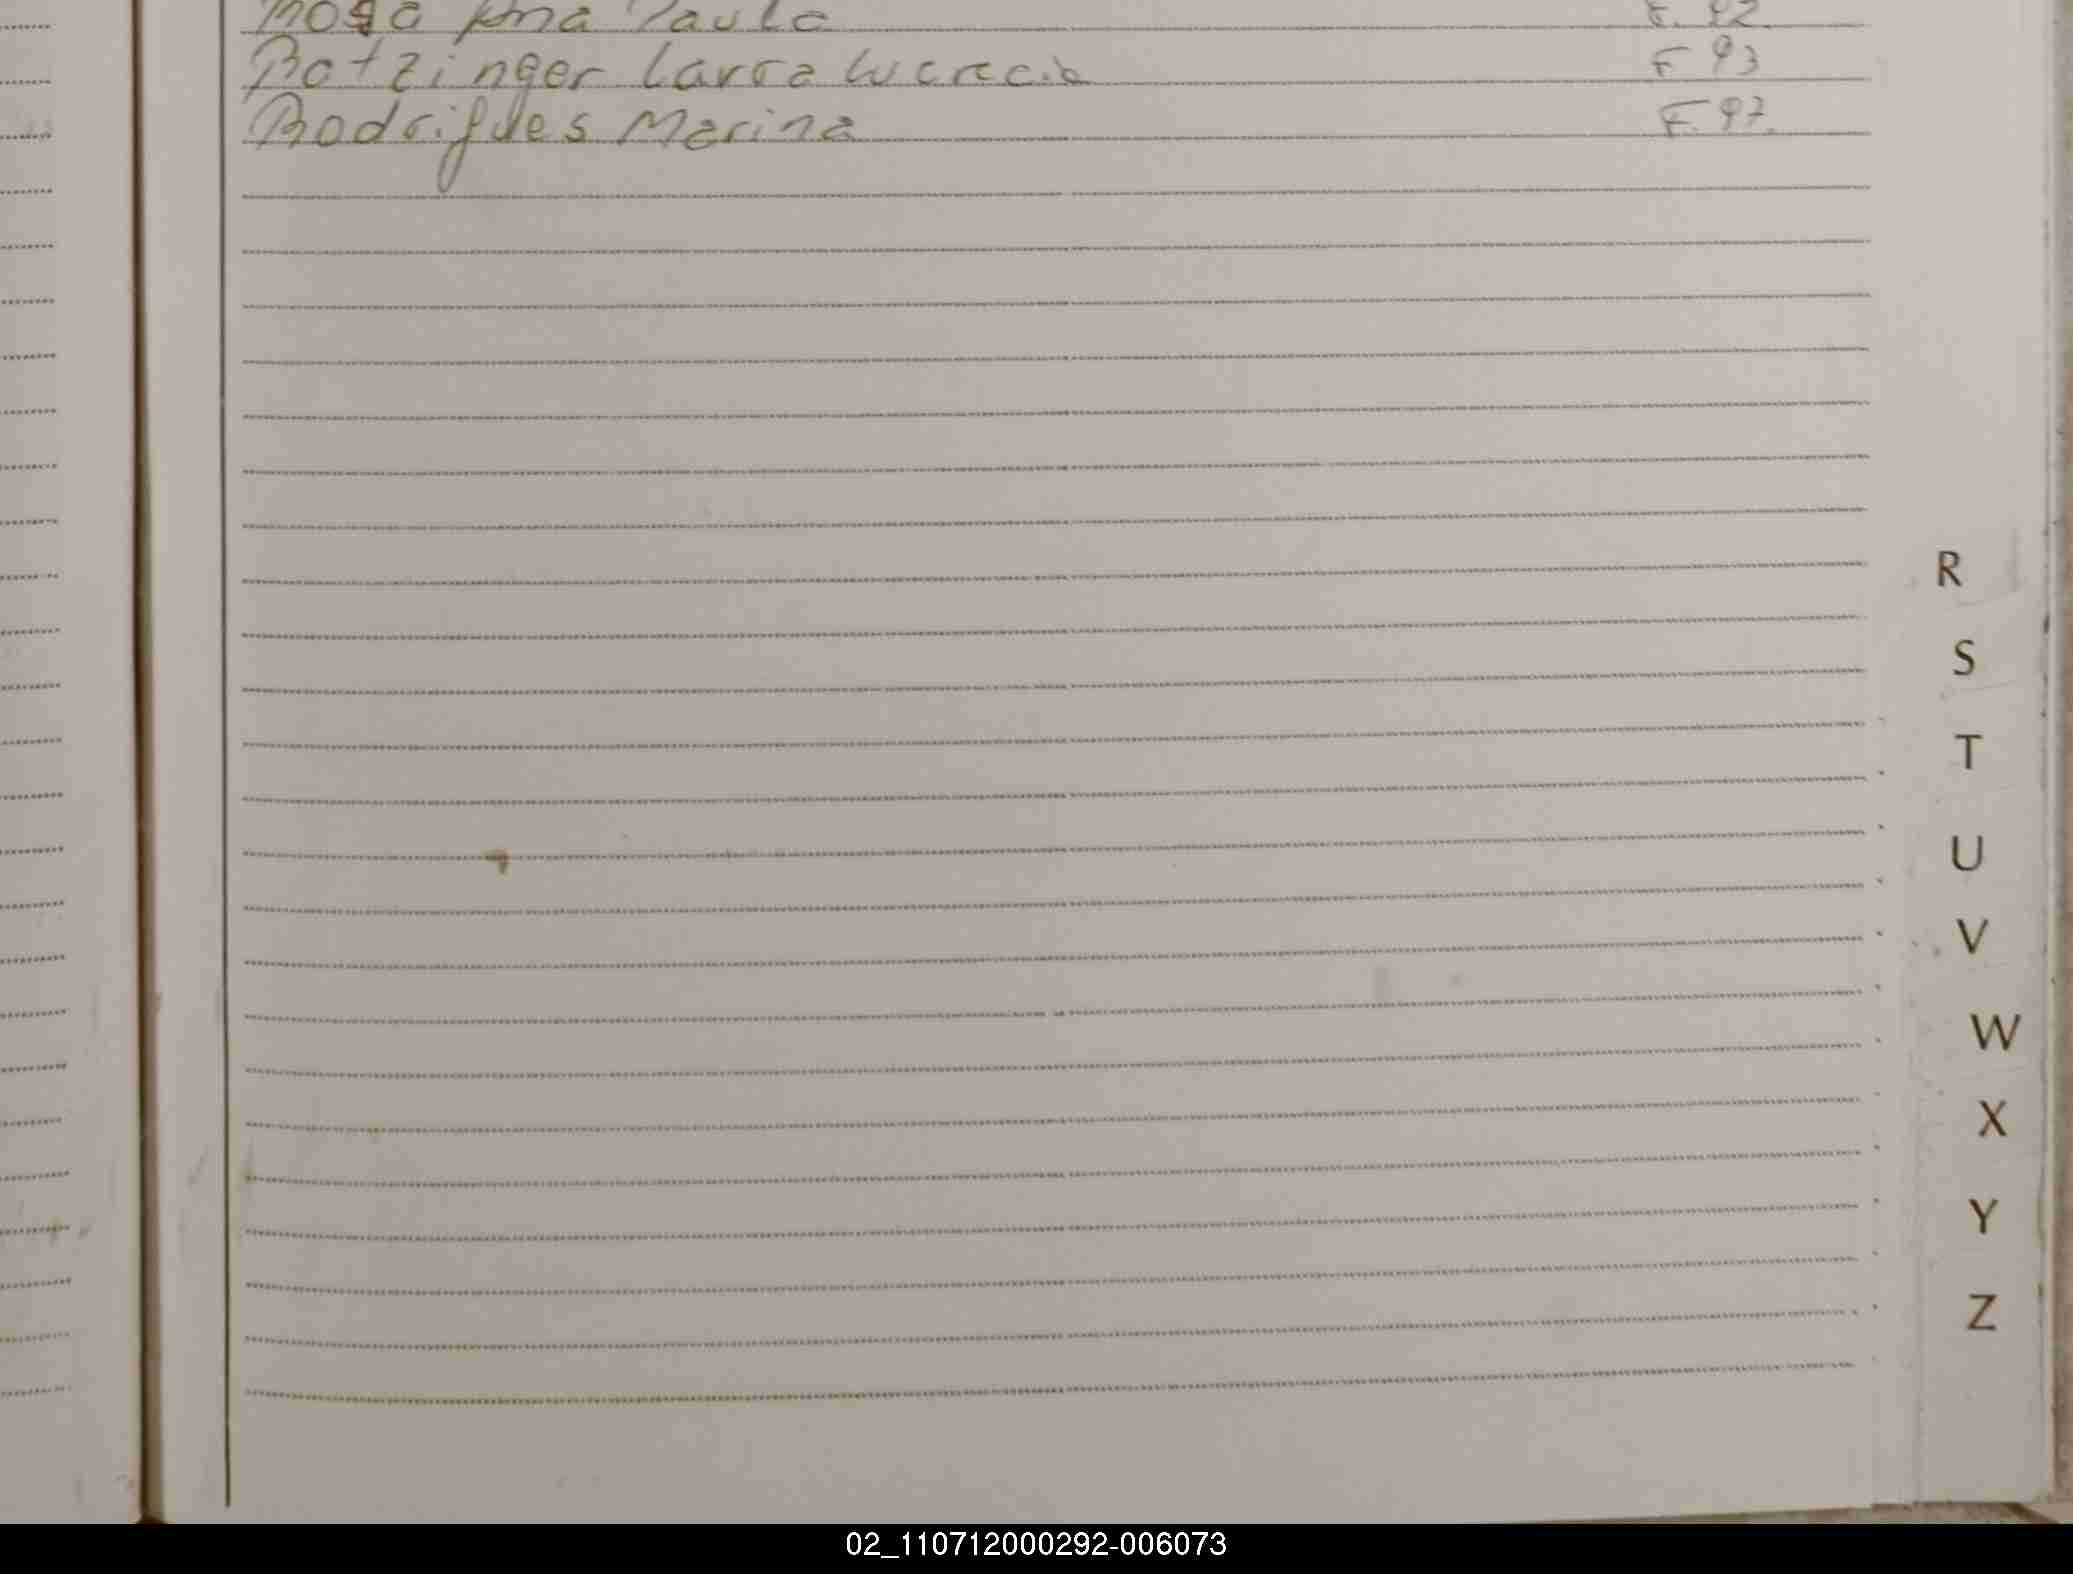 Rosa Ana Paula F. 92.
Rotzinger Larra Lucrecia F 93
Rodrigues Marina F. 97.
R
S
T
U
V
W
X
Y
Z
02_110712000292-006073